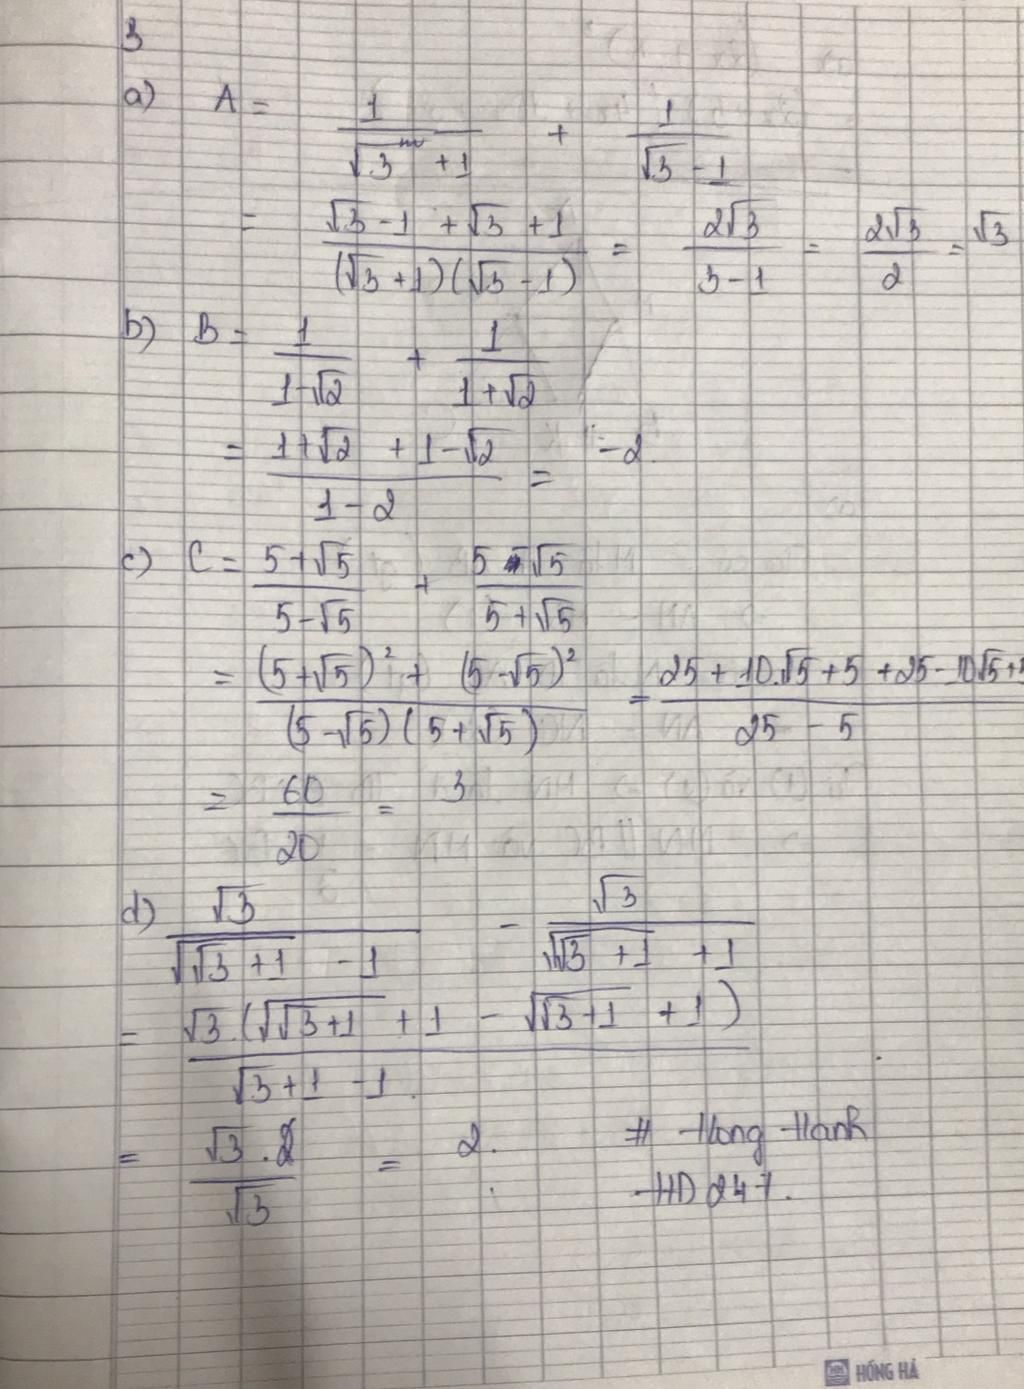 3
a) A = 1/(√3 + 1) + 1/(√3 - 1)
= (√3 - 1 + √3 + 1)/((√3 + 1)(√3 - 1)) = 2√3/(3 - 1) = 2√3/2 = √3
b) B = 1/(1 - √2) + 1/(1 + √2)
= (1 + √2 + 1 - √2)/(1 - 2) = -2.
c) C = (5 + √5)/(5 - √5) + (5 - √5)/(5 + √5)
= ((5 + √5)² + (5 - √5)²)/((5 - √5)(5 + √5)) = (25 + 10.√5 + 5 + 25 - 10√5 + 5)/(25 - 5)
= 60/20 = 3
d) √3/(√(√3 + 1) - 1) - √3/(√(√3 + 1) + 1)
= √3.(√(√3 + 1) + 1 - √(√3 + 1) + 1)/(√3 + 1 - 1)
= √3.2/√3 = 2.
# Hong Hanh
HD 247.
HỒNG HÀ